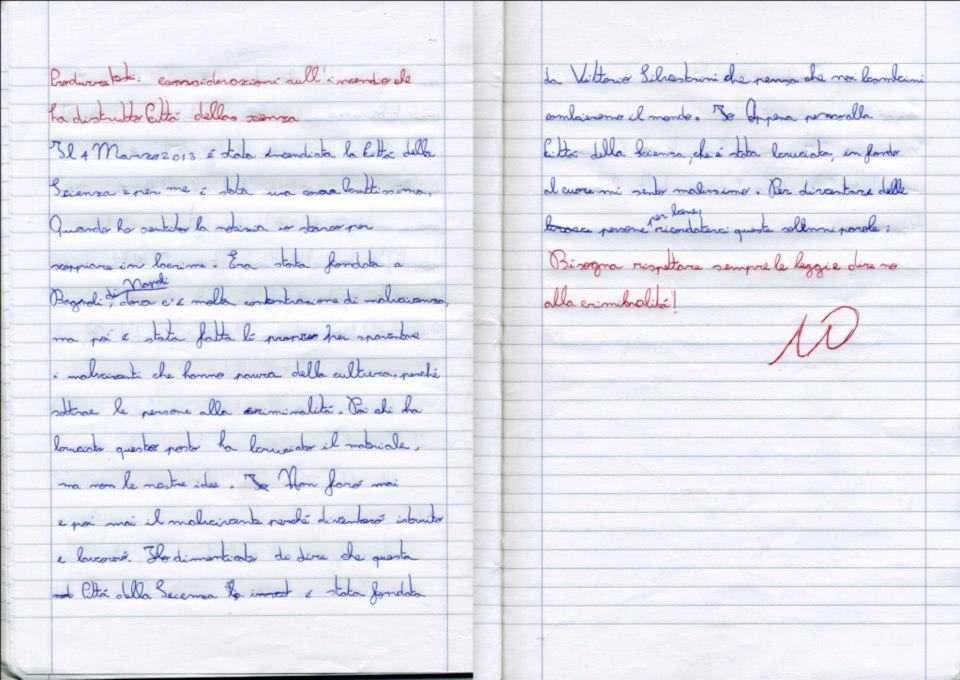 considerazioni sull'incendio che
ha distrutto Città della scienza
Il 4 Marzo 2013 è stata incendiata la Città della
Scienza e per me è stata una cosa bruttissima.
Quando ho sentito la notizia io stavo per
scoppiare in lacrime. Era stata fondata a
Bagnoli, di Napoli dove c'è molta concentrazione di malvivenza,
ma poi è stata fatta lì proprio per spaventare
i malviventi che hanno paura della cultura, perché
sottrae le persone alla criminalità. Poi chi ha
bruciato questo posto ha bruciato il materiale,
ma non le nostre idee. Io Non farò mai
e poi mai il malvivente perché diventerò istruito
e lavorerò. Ho dimenticato di dire che questa
Città della Scienza è stata fondata
da Vittorio Silvestrini che pensa che noi bambini
cambieremo il mondo. Io Appena penso alla
Città della Scienza, che è stata bruciata, in fondo
al cuore mi sento malissimo. Per diventare delle
persone per bene, ricordatevi queste solenni parole:
Bisogna rispettare sempre le leggi e dire no
alla criminalità!